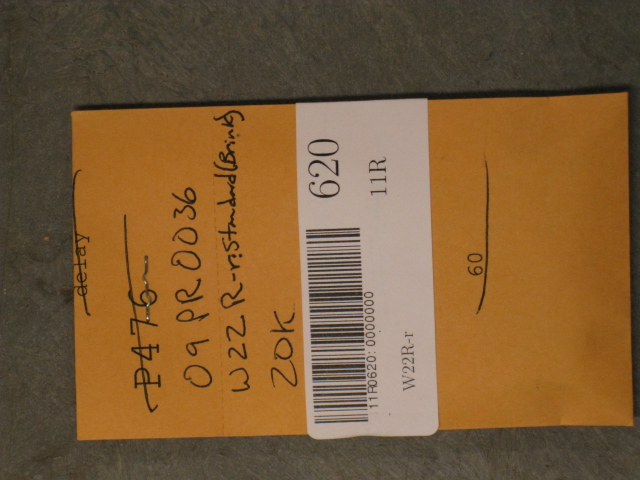 delay
P476
09PR0036
W22R-r:Standard(Brink)
20K
620
11R
11R0620:0000000
W22R-r
60